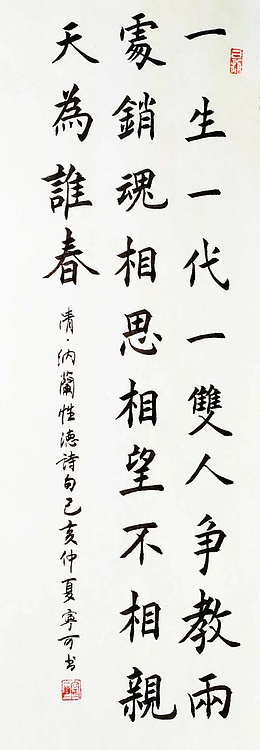 一生一代一雙人争教兩
處銷魂相思相望不相親
天為誰春
清·納蘭性德詩句己亥仲夏寧可书